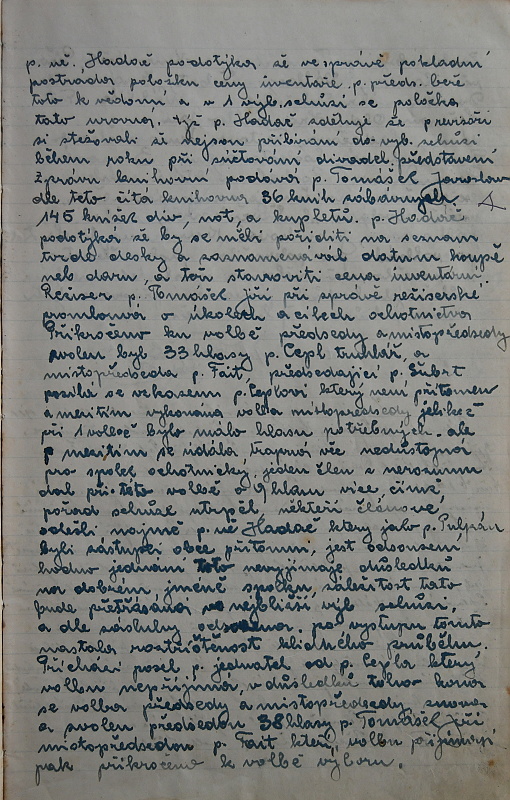 p. uč. Hadač podotýka sě ve správě pokladní
postráda položku ceny inventáře. p. předs. beře
toto k vědomí a v 1 výb. schůzi se položka
tato urovna. týž p. Hadač sděluje že previsoři
si stěžovali sě nejsou přibíráni do výb. schůzí
během roku při súčtování divadel. představení
Zprávu knihovní podává p. Tomášek Jaroslav
dle teto čítá knihovna 36 knih zábavných.
145 knížek div, not, a kupletů. p. Hadač
podotýká sě by se měli poříditi na seznam
tvrdé desky a zaznamenával datum koupě
neb daru, a též stanoviti cena inventární
Režiser p. Tomášek Jiří při správě režiserské
promlouva o úkolech a cílech ochotnictva
Přikročeno ku volbě předsedy a místopředsedy
zvolen byl 33 hlasy p. Cepl truhlář, a
místopředseda p. Fait, předsedající p. Šubrt
posílá se vzkazem p. Ceplovi který není přítomen
a mezitím vykonána volba místopředsedy jelikož
při 1 volbě bylo málo hlasu potřebných. ale
mezitím se udála trapná věc nedůstojná
pro spolek ochotnický, jeden člen z nerozumu
dal při této volbě o 9 hlasu více, čímž
pořad schůze utrpěl, někteří členové,
odešli najmě p. uč Hadač ktery jako p.
byli zástupci obce přítomni, jest odsouzení
hodno jednání toto nevyjímaje důsledků
na dobrém jméně spolku, záležitost tato
bude přetřásána v nejbližší výb schůzi,
a dle zásluhy po výstupu tomto
nastala roztříštěnost klidného průběhu.
Přichází posel p. jednatel od p. Cepla ktery
volbu nepřijímá, v důsledků toho koná
se volba předsedy a místopředsedy znova
a zvolen předsedou 38 hlasy p. Tomášek Jiří
místopředsedou p. Fait kteří volbu přijímají
pak přikročeno k volbě výboru.